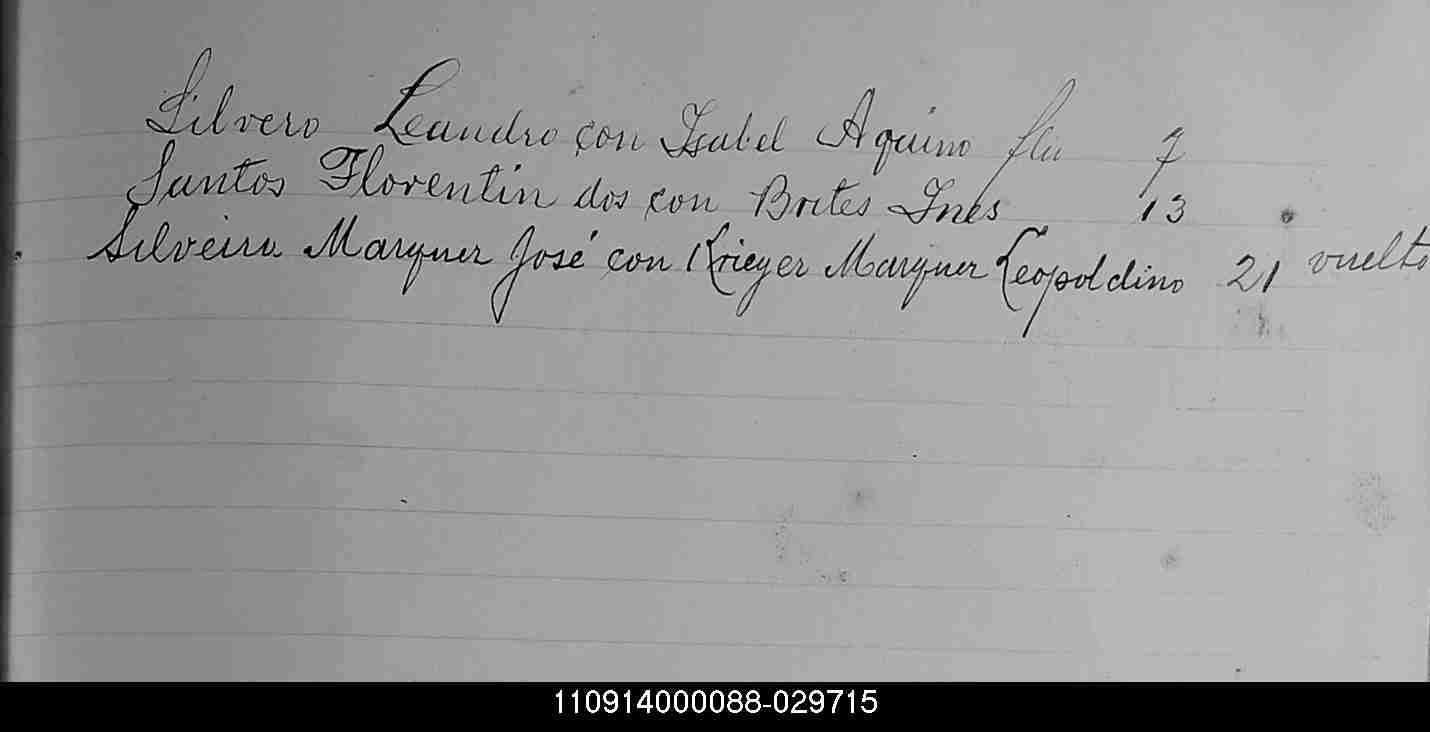 Silvero Leandro con Isabel Aquino fla 7
Santos Florentin dos con Brites Ines 13
Silveira Marquer José con Krieger Marquer Leopoldino 21 vuelto
110914000088-029715